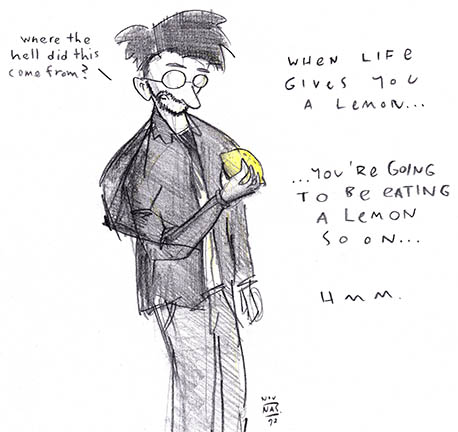 where the
hell did this
come from?
WHEN LIFE
GIVES YOU
A LEMON...
...YOU'RE GOING
TO BE EATING
A LEMON
SOON...
HMM.
NOV
NAS.
92